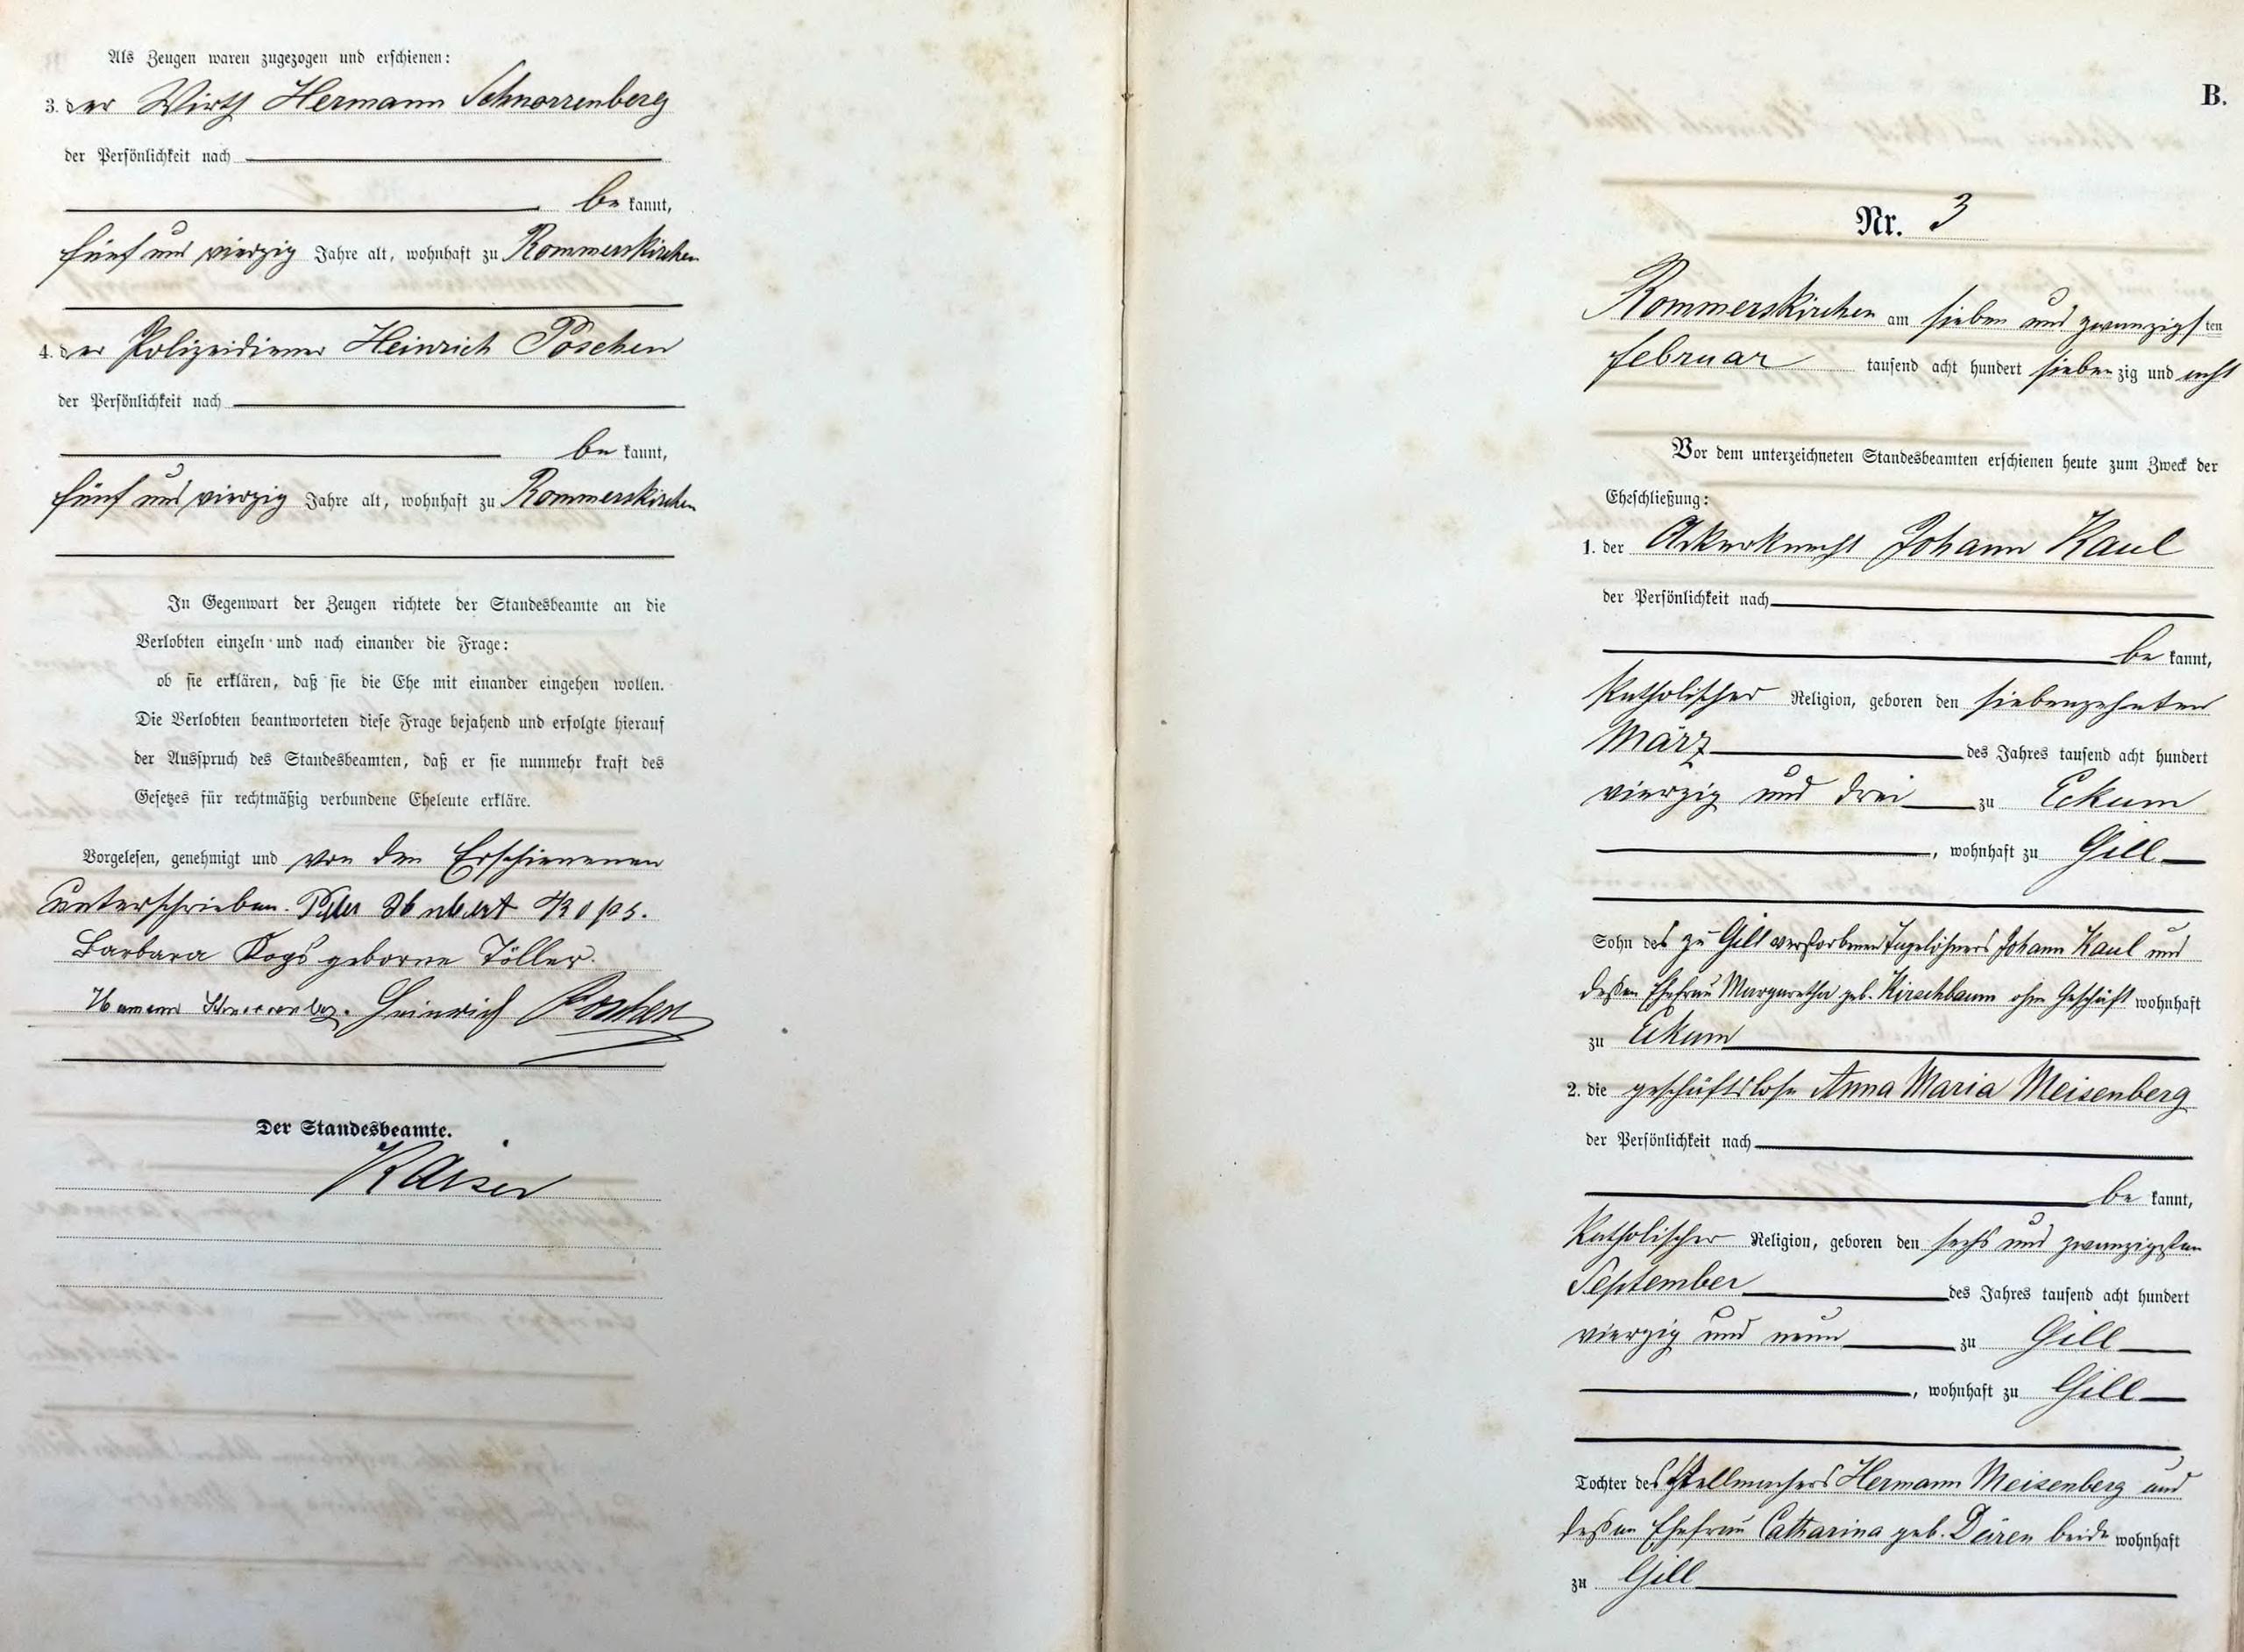 Als Zeugen waren zugezogen und erschienen:
3. der Wirth Hermann Schnorrenberg
der Persönlichkeit nach
be kannt,
fünf und vierzig Jahre alt, wohnhaft zu Rommerskirchen
4. der Polizeidiener Heinrich Pöschen
der Persönlichkeit nach
be kannt,
fünf und vierzig Jahre alt, wohnhaft zu Rommerskirchen
In Gegenwart der Zeugen richtete der Standesbeamte an die
Verlobten einzeln und nach einander die Frage:
ob sie erklären, daß sie die Ehe mit einander eingehen wollen.
Die Verlobten beantworteten diese Frage bejahend und erfolgte hierauf
der Ausspruch des Standesbeamten, daß er sie nunmehr kraft des
Gesetzes für rechtmäßig verbundene Eheleute erkläre.
Vorgelesen, genehmigt und von den Erschienenen
unterschrieben. Peter Hubert Kops.
Barbara Kops geborne Töller.
Hermann Schnorrenberg. Heinrich Poschen
Der Standesbeamte.
Kaiser
B.
Nr. 3
Rommerskirchen am sieben und zwanzigs ten
Februar tausend acht hundert sieben zig und acht
Vor dem unterzeichneten Standesbeamten erschienen heute zum Zweck der
Eheschließung:
1. der Ackerknecht Johann Kaul
der Persönlichkeit nach
be kannt,
katholischer Religion, geboren den siebenzehnten
März des Jahres tausend acht hundert
vierzig und drei zu Eckum
, wohnhaft zu Gill
Sohn des zu Gill verstorbenen Tagelöhners Johann Kaul und
dessen Ehefrau Margaretha geb. Kirschbaum ohne Geschäft wohnhaft
zu Eckum
2. die geschäftslose Anna Maria Meisenberg
der Persönlichkeit nach
be kannt,
katholischer Religion, geboren den sechs und zwanzigsten
September des Jahres tausend acht hundert
vierzig und neun zu Gill
, wohnhaft zu Gill
Tochter des Stellmachers Hermann Meisenberg und
dessen Ehefrau Catharina geb. Deiren beide wohnhaft
zu Gill